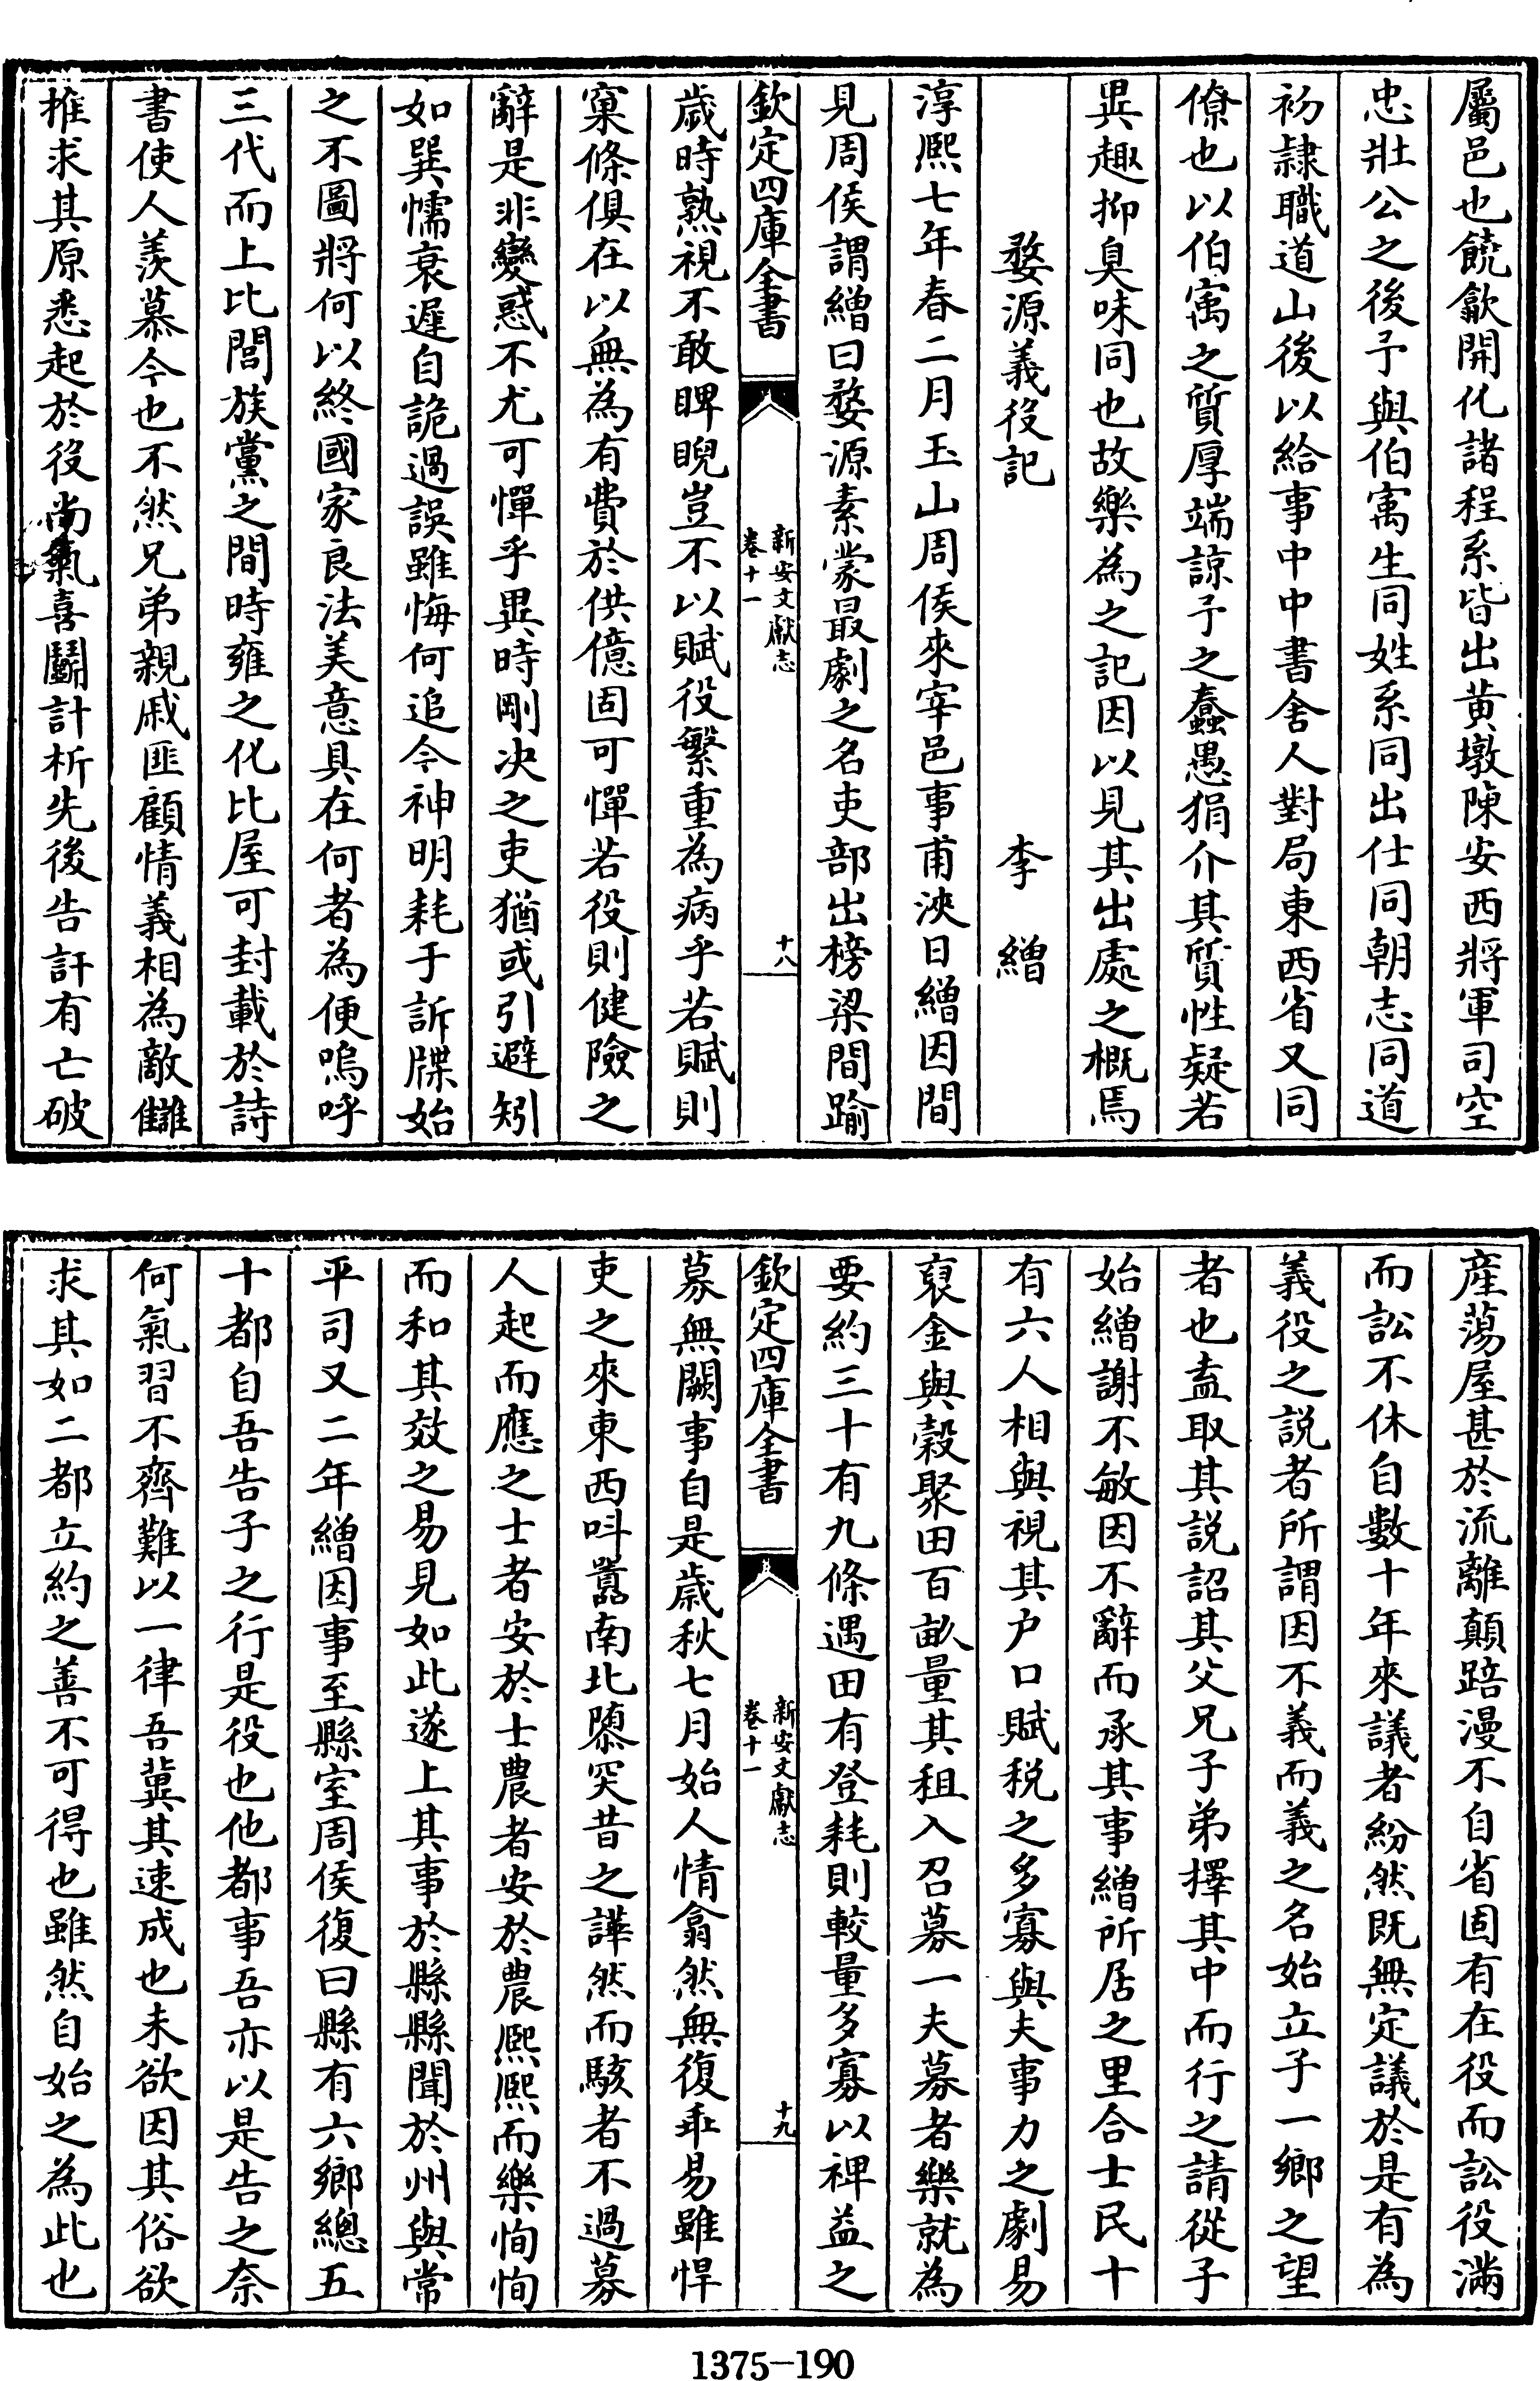 屬邑也饒歙開化諸程系皆出黄墩陳安西將軍司空
忠壯公之後予與伯寓生同姓系同出仕同朝志同道
初隷職道山後以給事中中書舍人對局東西省又同
僚也以伯寓之質厚端諒予之蠢愚狷介其質性疑若
異趣抑臭味同也故樂為之記因以見其出處之概焉
婺源義役記　李繒
淳熙七年春二月玉山周侯來宰邑事甫浹日繒因間
見周侯謂繒曰婺源素蒙最劇之名吏部出榜梁間踰
欽定四庫全書
新安文獻志
卷十一
十八
歲時熟視不敢睥睨豈不以賦役繁重為病乎若賦則
窠條俱在以無為有費於供億固可憚若役則健險之
辭是非變惑不尤可憚乎異時剛決之吏猶或引避矧
如巽懦衰遲自詭過誤雖悔何追今神明耗于訴牒始
之不圖將何以終國家良法美意具在何者為便嗚呼
三代而上比閭族黨之間時雍之化比屋可封載於詩
書使人羨慕今也不然兄弟親戚匪顧情義相為敵讎
推求其原悉起於役尚氣喜鬭計析先後告訐有亡破
産蕩屋甚於流離顛踣漫不自省固有在役而訟役滿
而訟不休自數十年來議者紛然既無定議於是有為
義役之説者所謂因不義而義之名始立子一鄉之望
者也盍取其説詔其父兄子弟擇其中而行之請從子
始繒謝不敏因不辭而承其事繒所居之里合士民十
有六人相與視其户口賦税之多寡與夫事力之劇易
裒金與穀聚田百畝量其租入召募一夫募者樂就為
要約三十有九條遇田有登耗則較量多寡以裨益之
欽定四庫全書
新安文獻志
卷十一
十九
募無闕事自是歲秋七月始人情翕然無復乖易雖悍
吏之來東西叫囂南北隳突昔之譁然而駭者不過募
人起而應之士者安於士農者安於農熙熙而樂恂恂
而和其效之易見如此遂上其事於縣縣聞於州與常
平司又二年繒因事至縣室周侯復曰縣有六鄉總五
十都自吾告子之行是役也他都事吾亦以是告之奈
何氣習不齊難以一律吾冀其速成也未欲因其俗欲
求其如二都立約之善不可得也雖然自始之為此也
1375-190